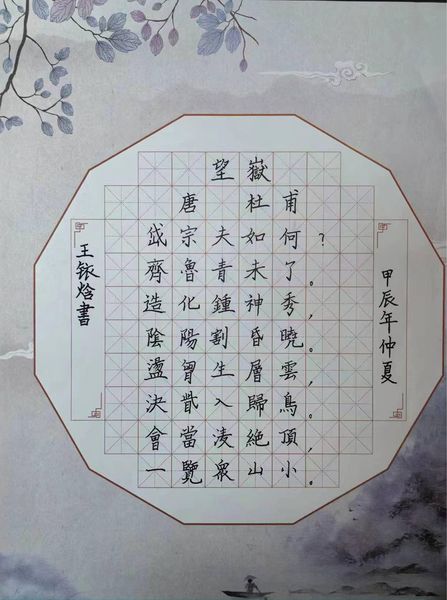 望嶽
唐 杜甫
岱宗夫如何？
齊魯青未了。
造化鍾神秀，
陰陽割昏曉。
盪胷生層雲，
決眥入歸鳥。
會當淩絶頂，
一覽衆山小。
甲辰年仲夏
王铱焓書